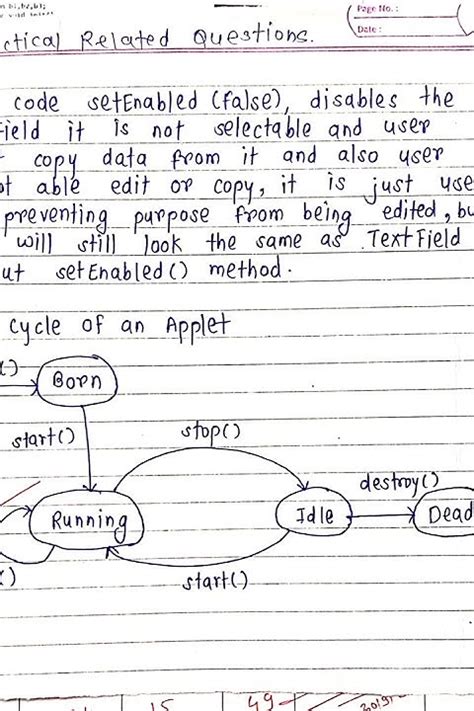 Page No. :
Date :
ctical Related Questions.
code setEnabled (false), disables the
ield it is not selectable and user
copy data from it and also user
ot able edit or copy, it is just use
preventing purpose from being edited, bu
will still look the same as TextField
ut setEnabled() method.
cycle of an Applet
Born
start()
stop()
destroy()
Running
Idle
Dead
start()
15
49